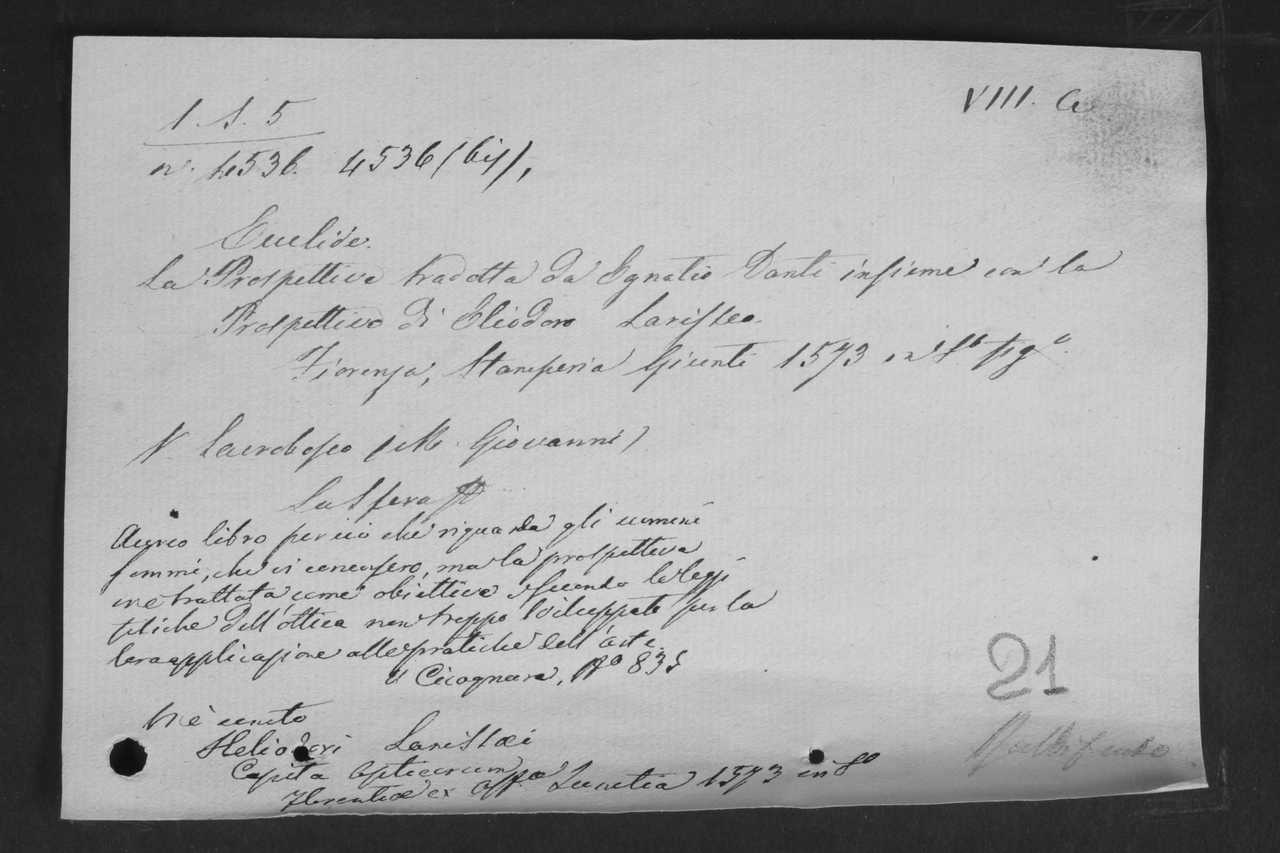 VIII. a
1. S. 5
n. 4536. 4536 (bis),
Euclide.
La Prospettiva tradotta da Egnatio Danti insieme con la
Prospettiva di Eliodoro Larisseo.
Fiorenza, Stamperia Giunti 1573 in 4° fig.a
V. Sacrobosco (M. Giovanni)
La Sfera
Aureo libro per ciò che riguarda gli uomini
sommi, che vi concorsero, ma la prospettiva
vi è trattata come obiettiva secondo le leggi
fisiche dell'ottica non troppo sviluppate per la
loro applicazione alle pratiche dell'arte.
V. Cicognara, N° 835
Vi è unito
Heliodori Larissaei
Capita opticorum
Florentiae ex off.a Iunctia 1573 in 8°
21